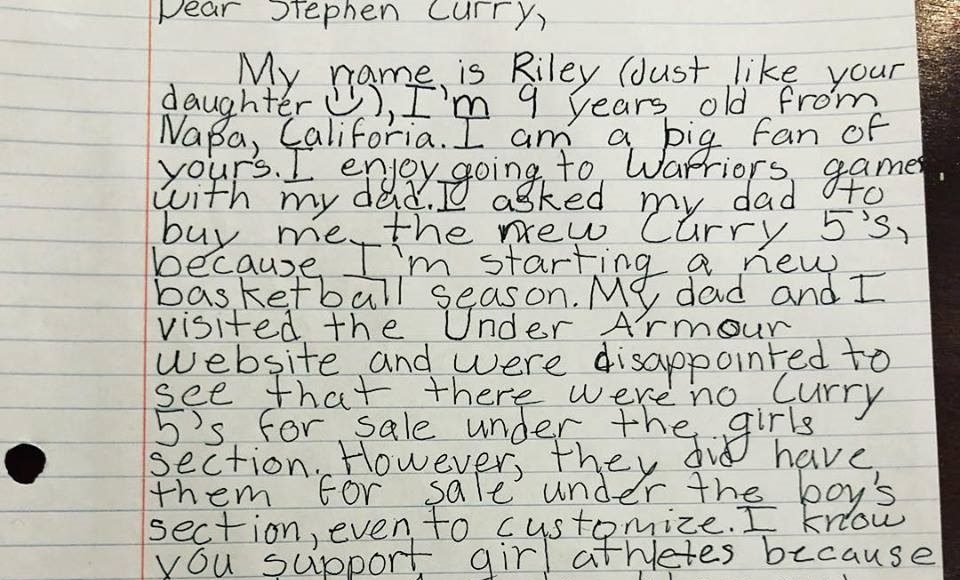 Dear Stephen Curry,
My name is Riley (Just like your
daughter), I'm 9 years old from
Napa, Califoria. I am a big fan of
yours. I enjoy going to Warriors games
with my dad. I asked my dad to
buy me the new Curry 5's,
because I'm starting a new
basketball season. My dad and I
visited the Under Armour
website and were disappointed to
see that there were no Curry
5's for sale under the girls
section. However, they did have
them for sale under the boy's
section, even to customize. I know
you support girl athletes because